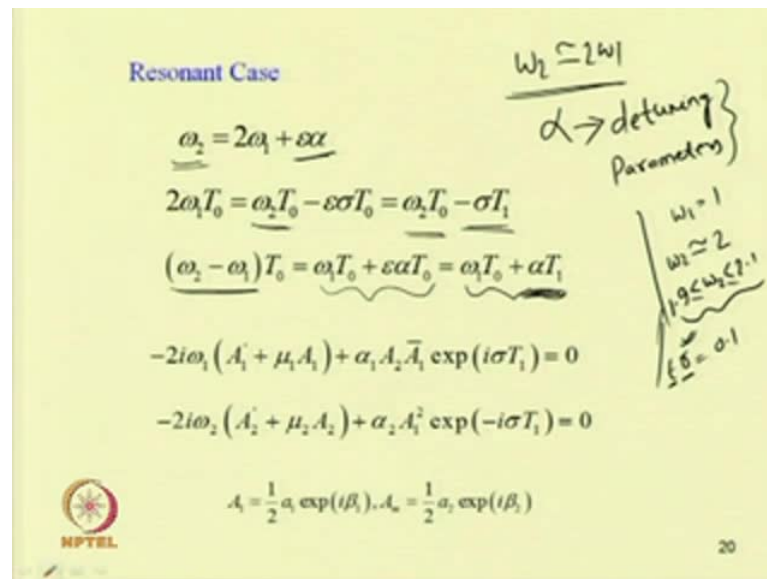 Resonant Case
ω₂ ≃ 2ω1
α → detuning
Parameters
ω₂ = 2ω₁ + εα
2ω₁T₀ = ω₂T₀ − εσT₀ = ω₂T₀ − σT₁
(ω₂ − ω₁)T₀ = ω₁T₀ + εαT₀ = ω₁T₀ + αT₁
ω₁ = 1
ω₂ ≃ 2
1.9 ≤ ω₂ ≤ 2.1
εσ = 0.1
−2iω₁(A₁′ + μ₁A₁) + α₁A₂Ā₁ exp(iσT₁) = 0
−2iω₂(A₂′ + μ₂A₂) + α₂A₁² exp(−iσT₁) = 0
A₁ = 1/2 a₁ exp(iβ₁), Aₙ = 1/2 a₂ exp(iβ₂)
NPTEL
20